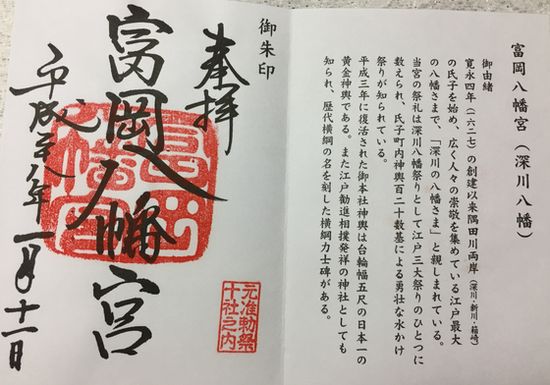 富岡八幡宮（深川八幡）
御由緒
寛永四年（一六二七）の創建以来隅田川両岸（深川・新川・箱崎）
の氏子を始め、広く人々の崇敬を集めている江戸最大
の八幡さまで、「深川の八幡さま」と親しまれている。
当宮の祭礼は深川八幡祭りとして江戸三大祭りのひとつに
数えられ、氏子町内神輿百二十数基による勇壮な水かけ
祭りが知られている。
平成三年に復活された御本社神輿は台輪幅五尺の日本一の
黄金神輿である。また江戸勧進相撲発祥の神社としても
知られ、歴代横綱の名を刻した横綱力士碑がある。
御朱印
奉拝
富岡八幡宮
平成廿八年一月十二日
富岡八幡宮
元准勅祭
十社之内